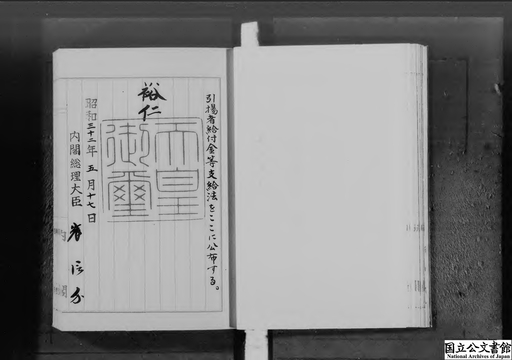 引揚者給付金等支給法をここに公布する。
裕仁
天皇
御璽
昭和三十二年五月十七日
内閣総理大臣 岸信介
国立公文書館
National Archives of Japan